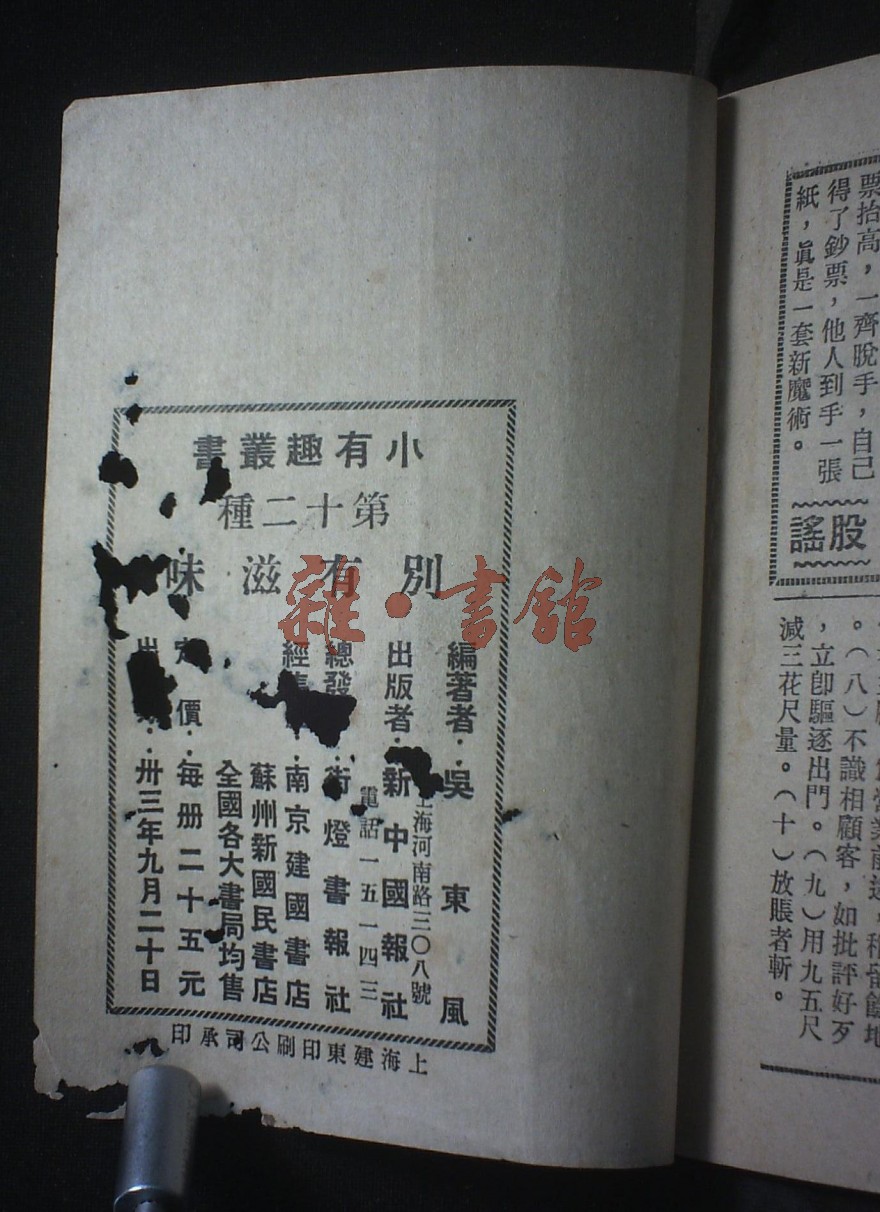 小有趣叢書
第十二種
別有滋味
編著者‥吳東風
出版者‥新中國報社
上海河南路三〇八號
電話一五一四三
總發‥街燈書報社
經售‥南京建國書店
蘇州新國民書店
全國各大書局均售
定價‥每冊二十五元
出‥卅三年九月二十日
上海建東印刷公司承印
雜·書館
票抬高，一齊脫手，自己
得了鈔票，他人到手一張
紙，眞是一套新魔術。
股謠
。（八）不識相顧客，如批評好歹
，立卽驅逐出門。（九）用九五尺
減三花尺量。（十）放賬者斬。